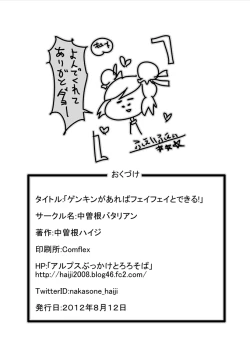 よんでくれて
ありがとダョー
おくづけ
タイトル:「ゲンキンがあればフェイフェイとできる!」
サークル名:中曽根バタリアン
著作:中曽根ハイジ
印刷所:Comflex
HP:「アルプスぶっかけとろろそば」
http://haiji2008.blog46.fc2.com/
TwitterID:nakasone_haiji
発行日:2012年8月12日